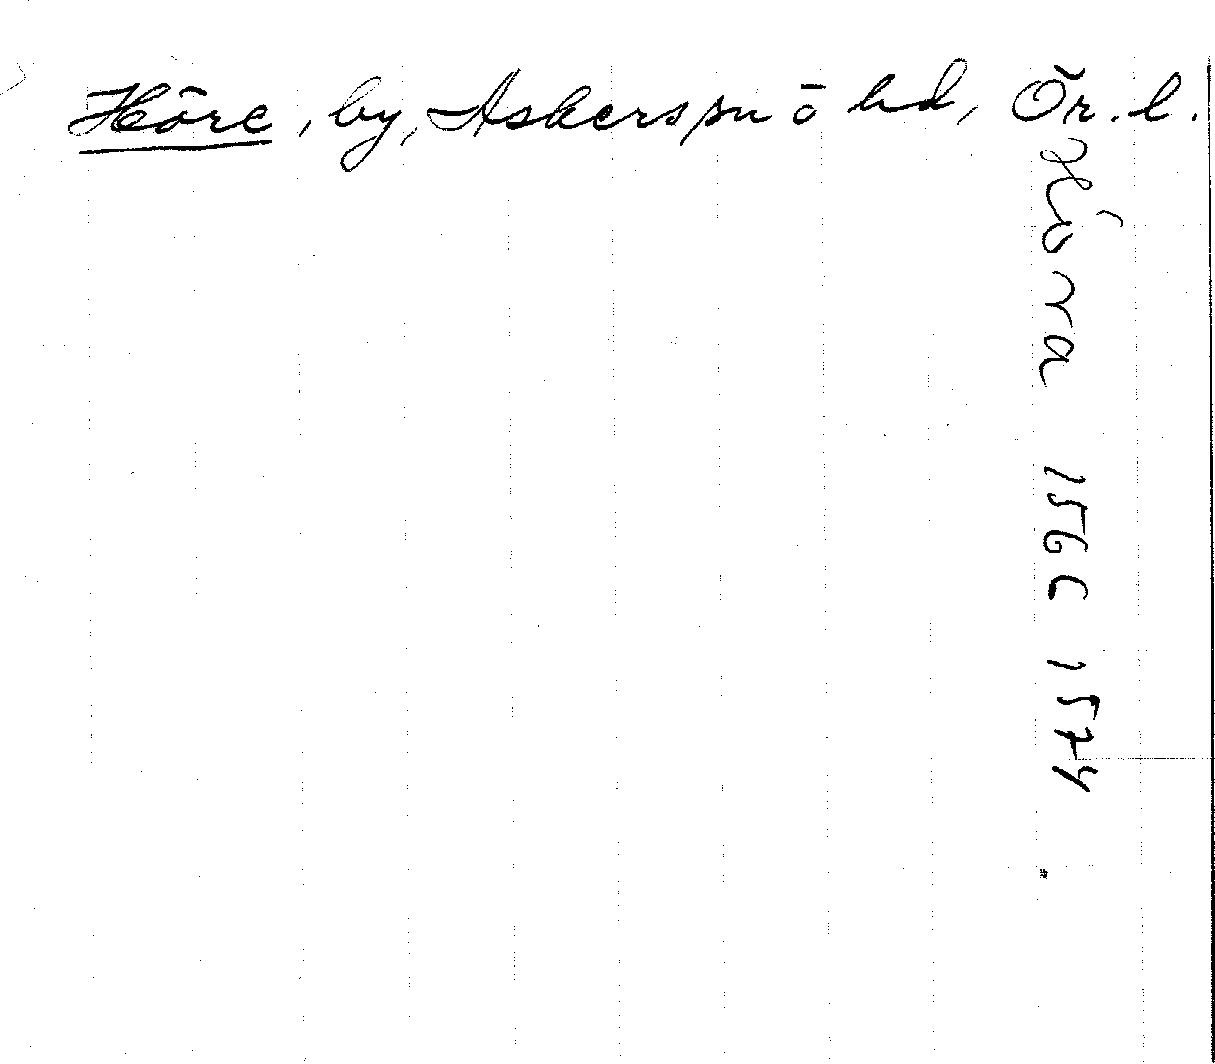 Höre, by, Askers sn ö hd, Ör. l.
Höra 156 C 1574